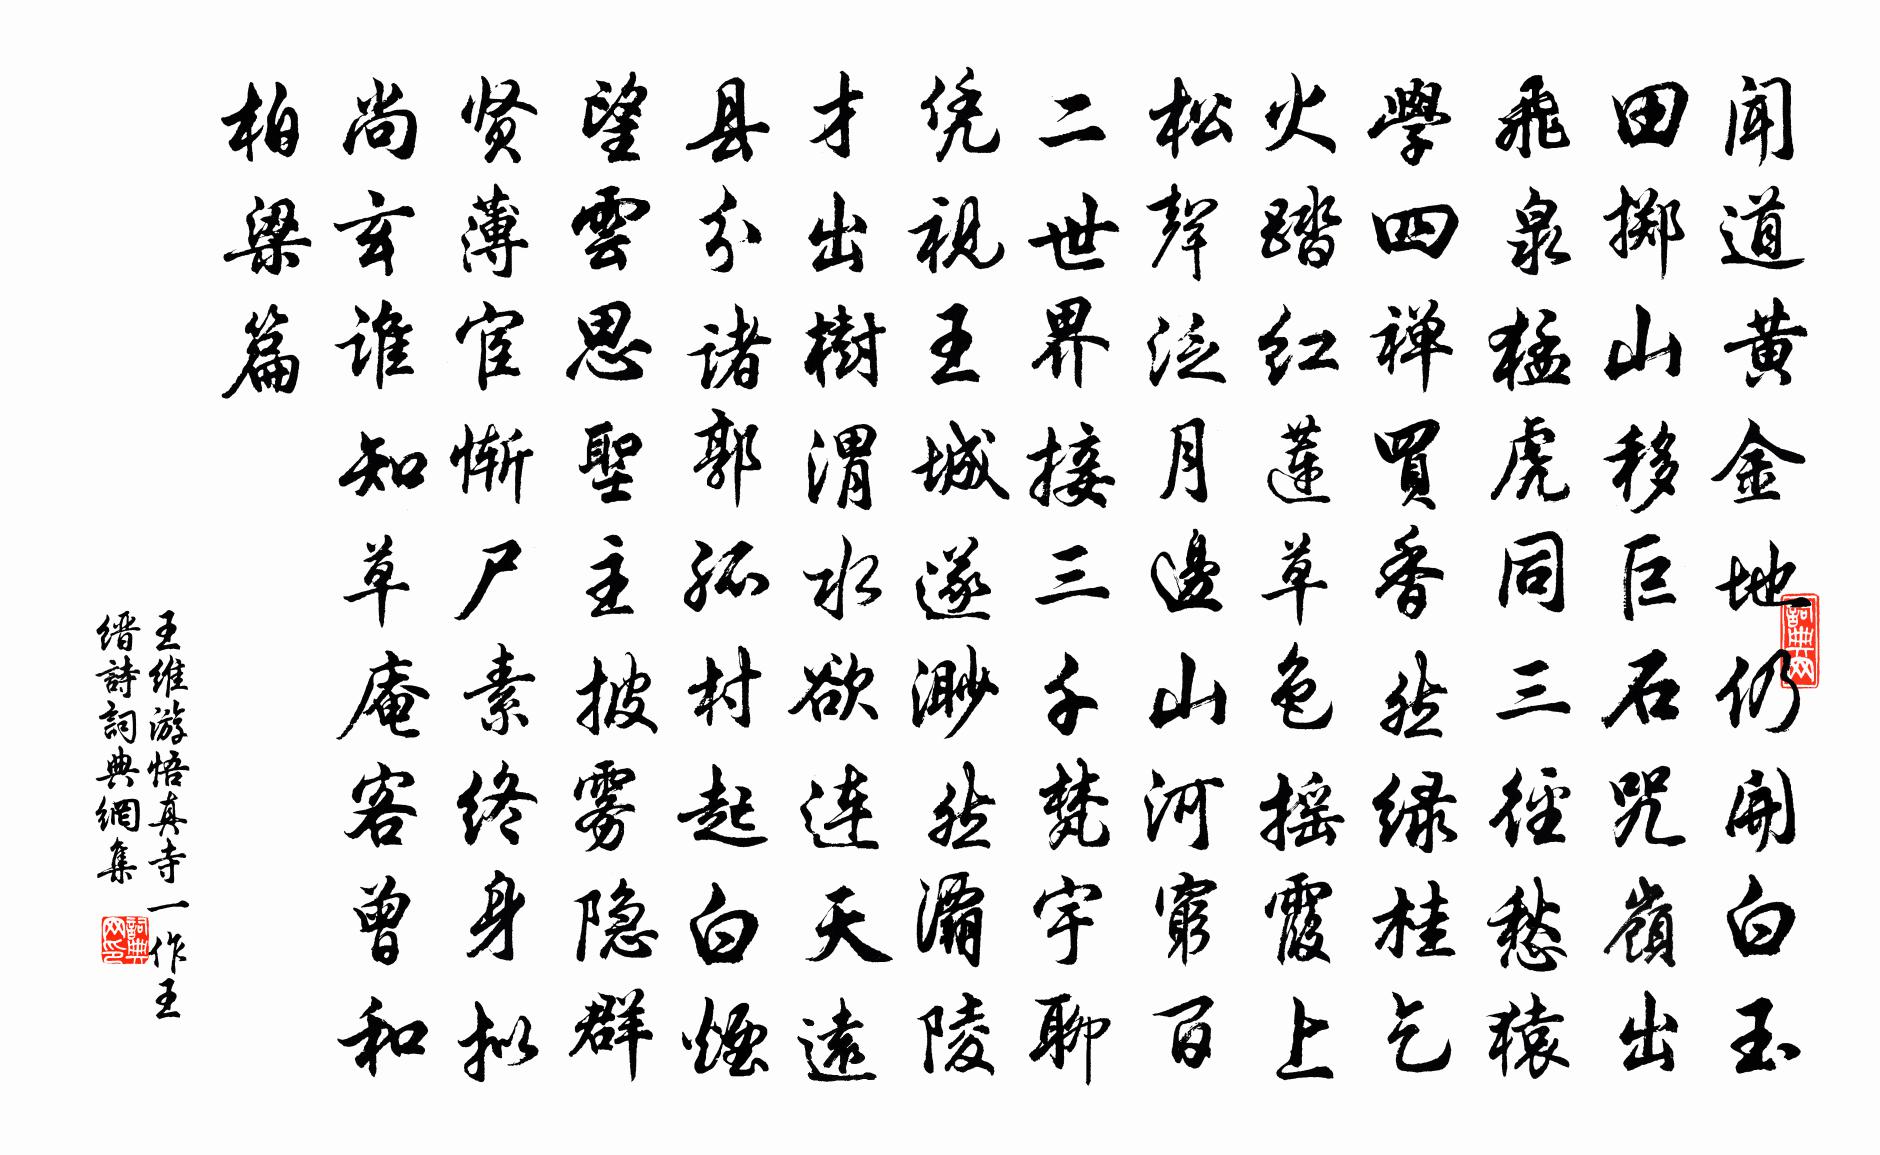 闻道黄金地仍開白玉
田掷山移巨石咒嶺出
飛泉猛虎同三徑愁猿
學四禅買香然绿桂乞
火踏红蓮草色摇霞上
松聲泛月邊山河窮百
二世界接三千梵宇聊
凭视王城遂渺然灞陵
才出樹渭水欲连天遠
县分诸郭孤村起白煙
望雲思聖主披雾隐群
贤薄宦惭尸素终身拟
尚玄谁知草庵客曾和
柏梁篇
王维游悟真寺一作王
缙詩詞典網集
詞典网
詞典网印